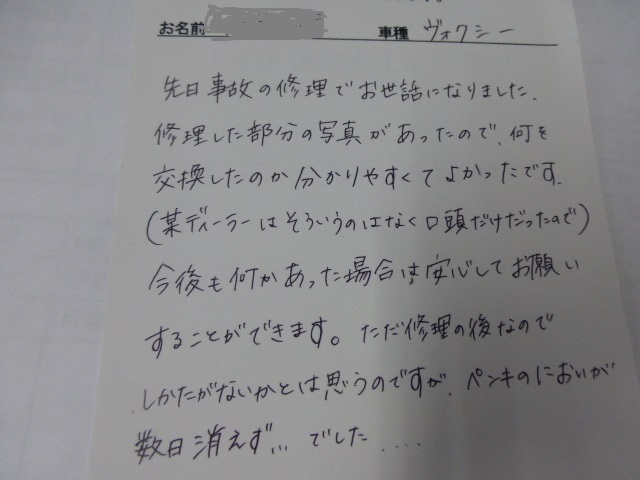 お名前 車種 ヴォクシー
先日事故の修理でお世話になりました.
修理した部分の写真があったので、何を
交換したのか分かりやすくてよかったです.
(某ディーラーはそういうのはなく口頭だけだったので)
今後も何かあった場合は安心してお願い
することができます。ただ修理の後なので
しかたがないかとは思うのですが、ペンキのにおいが
数日消えず... でした....